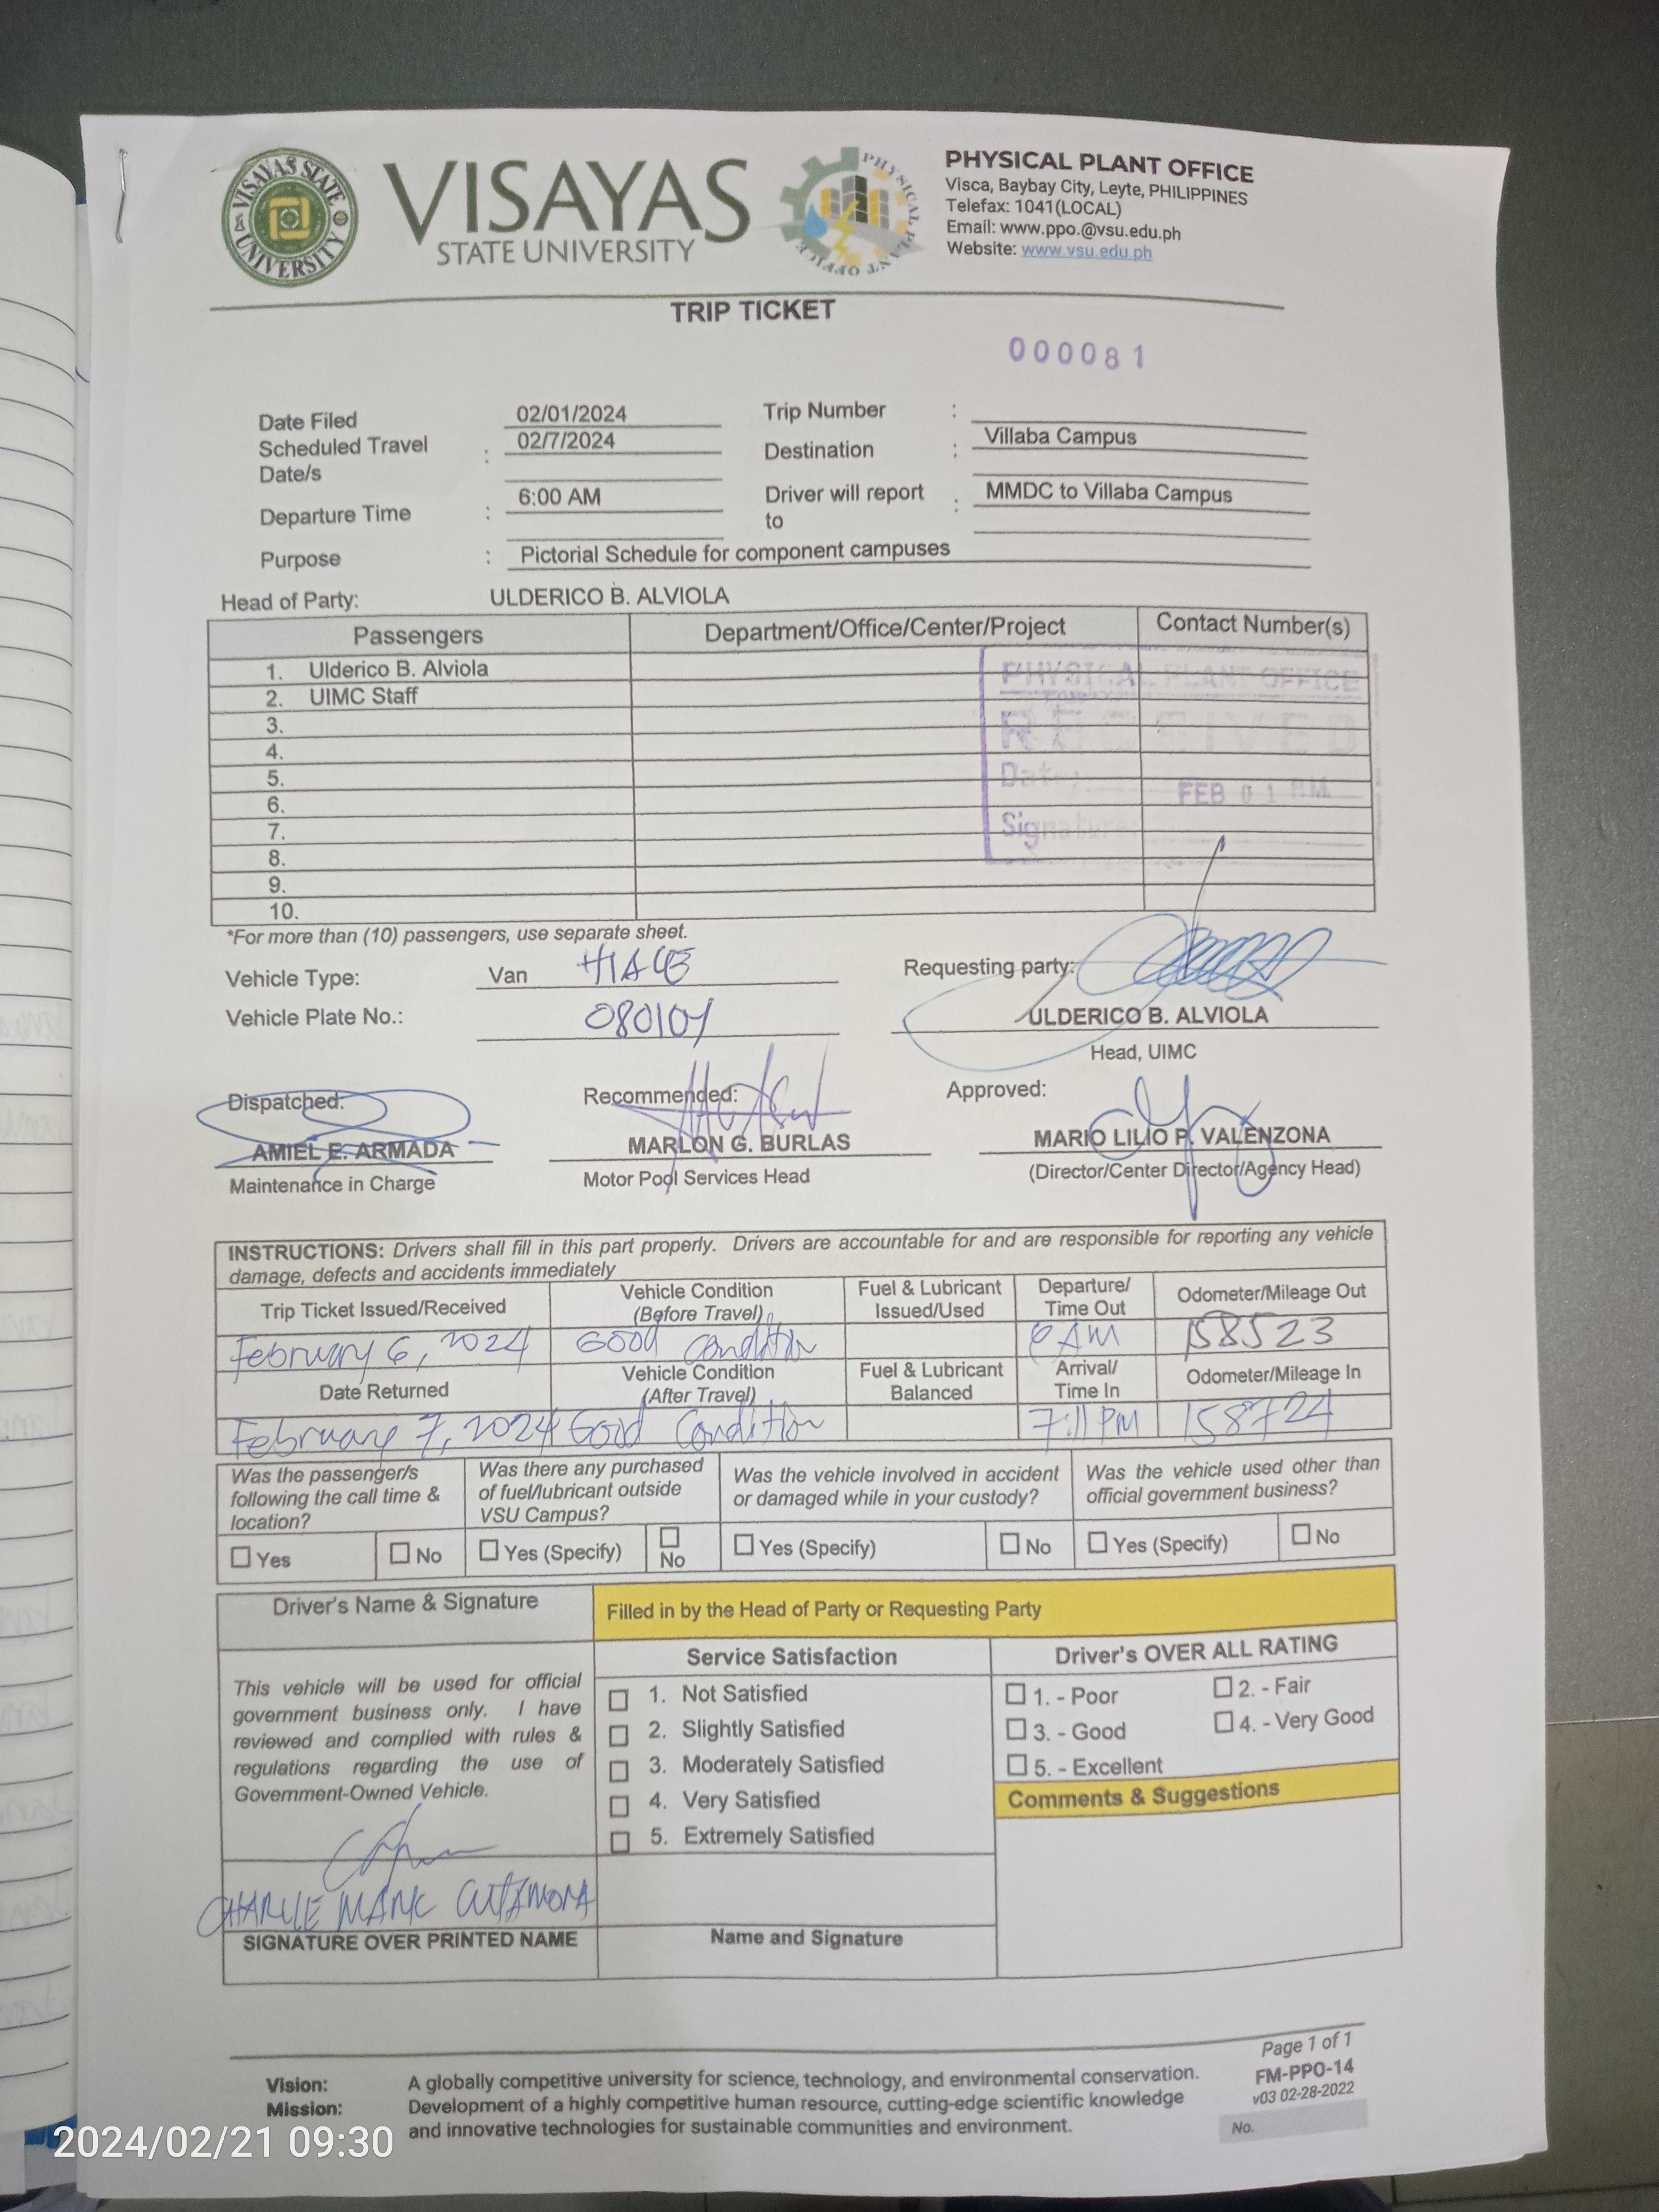 VISAYAS STATE UNIVERSITY
VISAYAS
STATE UNIVERSITY
PHYSICAL PLANT OFFICE
PHYSICAL PLANT OFFICE
Visca, Baybay City, Leyte, PHILIPPINES
Telefax: 1041(LOCAL)
Email: www.ppo.@vsu.edu.ph
Website: www.vsu.edu.ph
TRIP TICKET
000081
Date Filed 02/01/2024 Trip Number :
Scheduled Travel Date/s : 02/7/2024 Destination : Villaba Campus
Departure Time : 6:00 AM Driver will report to : MMDC to Villaba Campus
Purpose : Pictorial Schedule for component campuses
Head of Party: ULDERICO B. ALVIOLA
Passengers Department/Office/Center/Project Contact Number(s)
1. Ulderico B. Alviola
2. UIMC Staff
3.
4.
5.
6.
7.
8.
9.
10.
PHYSICAL PLANT OFFICE
RECEIVED
Date: FEB 01
Signature:
*For more than (10) passengers, use separate sheet.
Vehicle Type: Van HIACE
Requesting party:
Vehicle Plate No.: 080104
ULDERICO B. ALVIOLA
Head, UIMC
Dispatched: Recommended: Approved:
AMIEL E. ARMADA MARLON G. BURLAS MARIO LILIO P. VALENZONA
Maintenance in Charge Motor Pool Services Head (Director/Center Director/Agency Head)
INSTRUCTIONS: Drivers shall fill in this part properly. Drivers are accountable for and are responsible for reporting any vehicle
damage, defects and accidents immediately
Trip Ticket Issued/Received Vehicle Condition (Before Travel) Fuel & Lubricant Issued/Used Departure/ Time Out Odometer/Mileage Out
February 6, 2024 Good Condition 6 AM 158523
Date Returned Vehicle Condition (After Travel) Fuel & Lubricant Balanced Arrival/ Time In Odometer/Mileage In
February 7, 2024 Good Condition 7:11 PM 158724
Was the passenger/s following the call time & location?
Yes No
Was there any purchased of fuel/lubricant outside VSU Campus?
Yes (Specify) No
Was the vehicle involved in accident or damaged while in your custody?
Yes (Specify) No
Was the vehicle used other than official government business?
Yes (Specify) No
Driver's Name & Signature
Filled in by the Head of Party or Requesting Party
This vehicle will be used for official
government business only. I have
reviewed and complied with rules &
regulations regarding the use of
Government-Owned Vehicle.
CHARLIE MARK CUTAMORA
SIGNATURE OVER PRINTED NAME
Service Satisfaction
1. Not Satisfied
2. Slightly Satisfied
3. Moderately Satisfied
4. Very Satisfied
5. Extremely Satisfied
Name and Signature
Driver's OVER ALL RATING
1. - Poor 2. - Fair
3. - Good 4. - Very Good
5. - Excellent
Comments & Suggestions
Page 1 of 1
FM-PPO-14
v03 02-28-2022
No.
Vision: A globally competitive university for science, technology, and environmental conservation.
Mission: Development of a highly competitive human resource, cutting-edge scientific knowledge
and innovative technologies for sustainable communities and environment.
2024/02/21 09:30